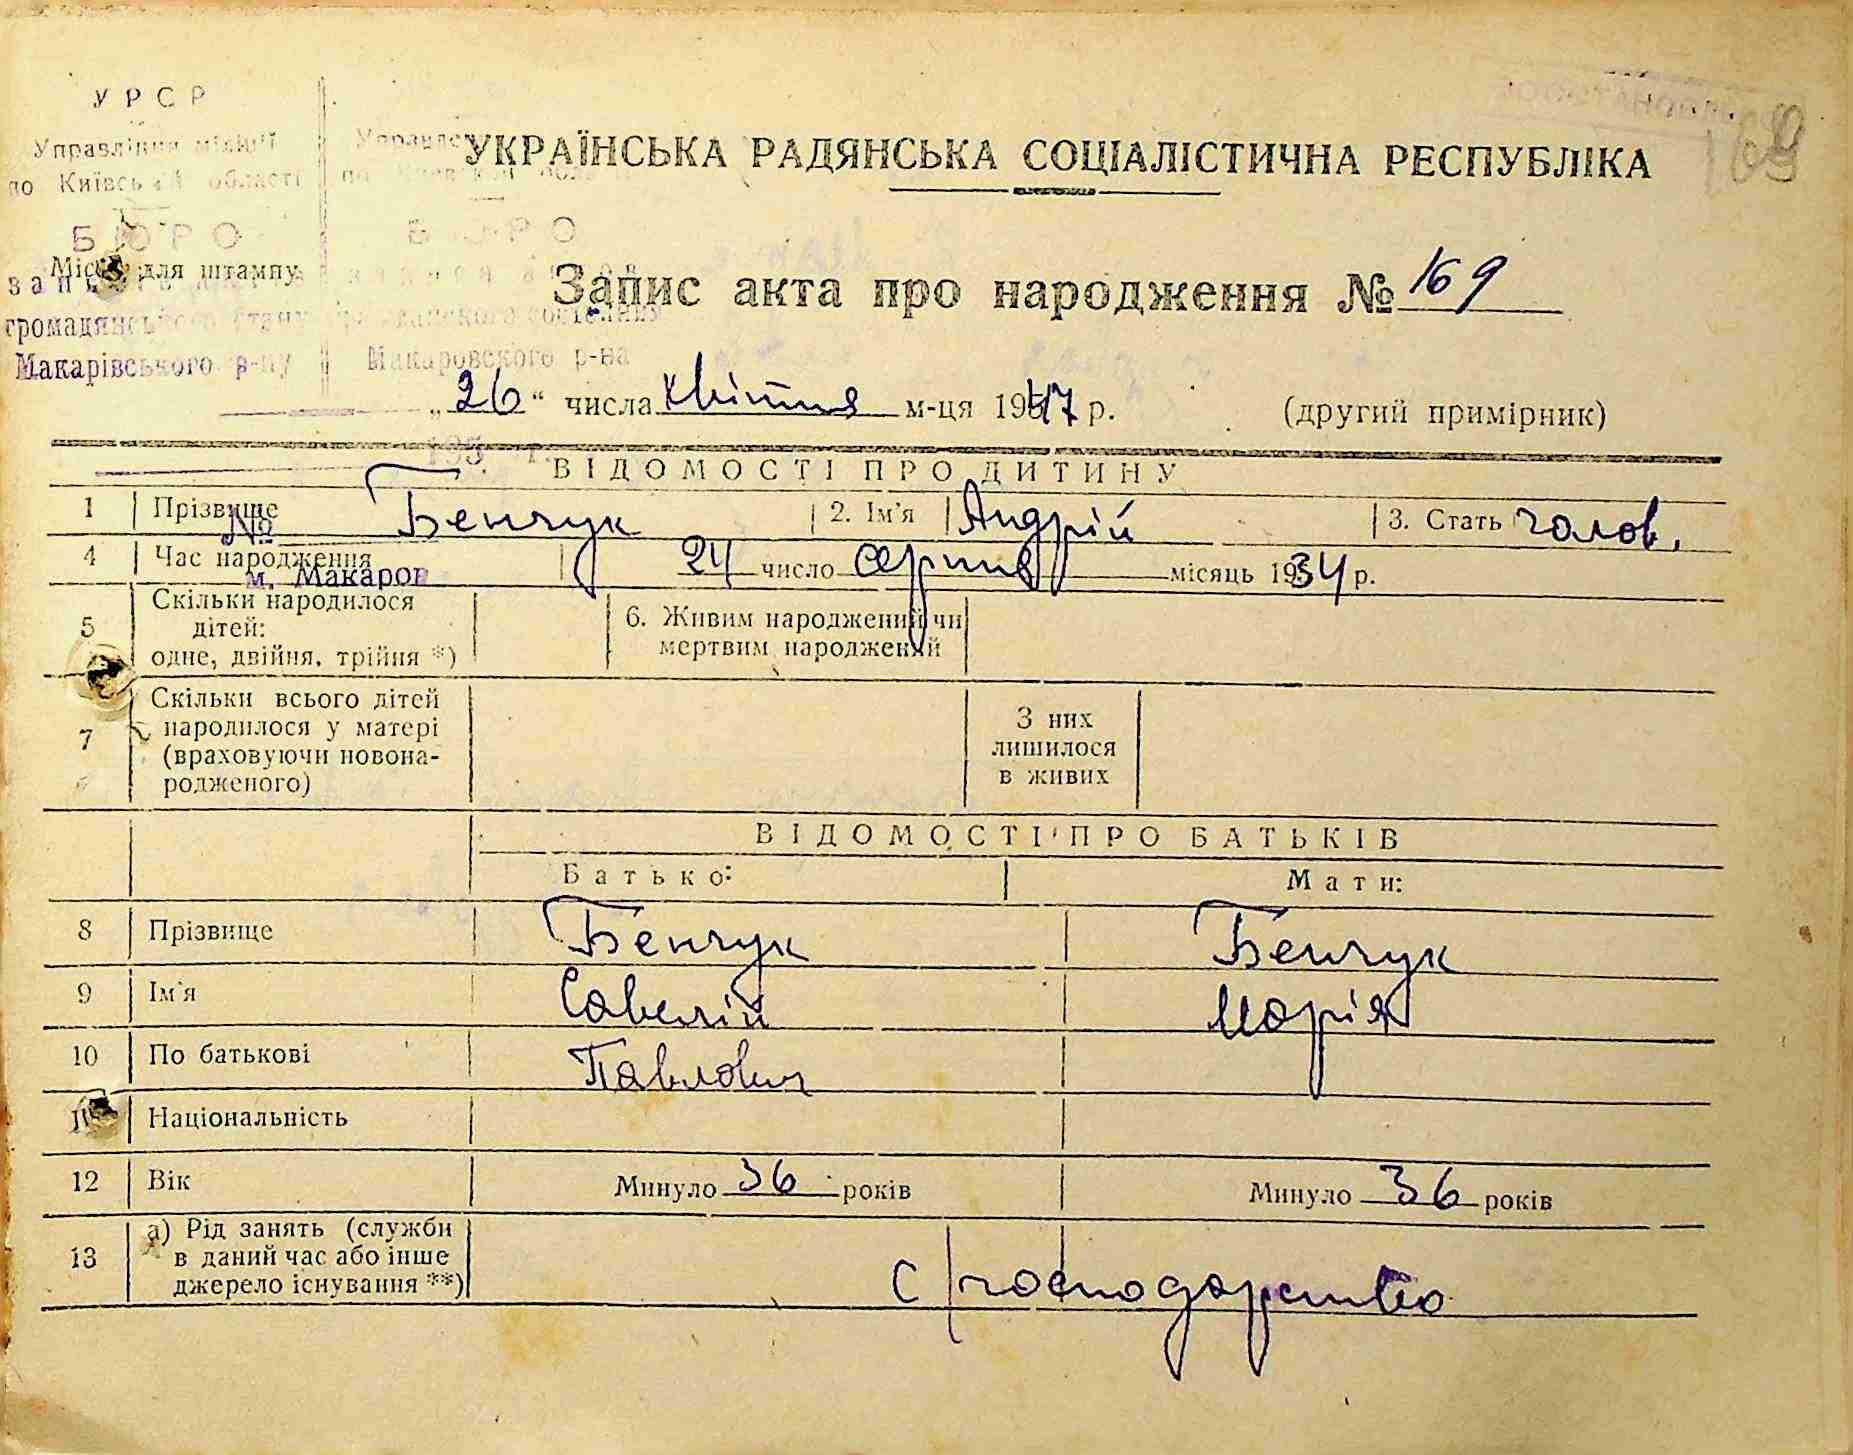 УРСР
Управління міліції
по Київській області
БЮРО
Місце для штампу
громадянського стану
Макарівського р-ну
БЮРО
Макаровского р-на
№
м. Макаров
169
УКРАЇНСЬКА РАДЯНСЬКА СОЦІАЛІСТИЧНА РЕСПУБЛІКА
Запис акта про народження № 169
„26“ числа квітня м-ця 1947 р. (другий примірник)
ВІДОМОСТІ ПРО ДИТИНУ
1 Прізвище Бенчук 2. Ім'я Андрій 3. Стать чолов.
4 Час народження 24 число серпня місяць 1934 р.
5 Скільки народилося
дітей:
одне, двійня, трійня *)
6. Живим народжений чи
мертвим народжений
7 Скільки всього дітей
народилося у матері
(враховуючи новона-
родженого)
З них
лишилося
в живих
ВІДОМОСТІ ПРО БАТЬКІВ
Батько: Мати:
8 Прізвище Бенчук Бенчук
9 Ім'я Савелій Марія
10 По батькові Павлович
11 Національність
12 Вік Минуло 36 років Минуло 36 років
13 а) Рід занять (служби
в даний час або інше
джерело існування **)
с/господарство